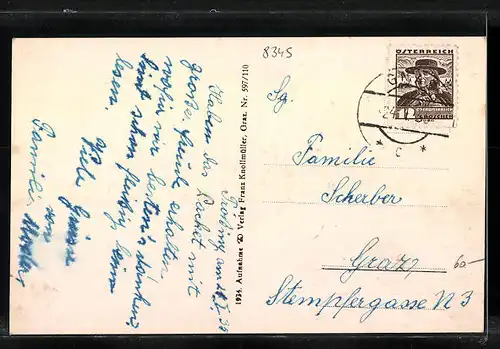 8345
ÖSTERREICH
12
GROSCHEN
Sg.
Familie
Scherber
Graz,
Stempfergasse N 3
60-
1934. Aufnahme Verlag Franz Knollmüller, Graz. Nr. 597/110
Haben das Packet mit
große Freude erhalten
wofür wir bestens danken.
sind schon fleißig beim
lesen.
Viele Grüsse
von
Familie